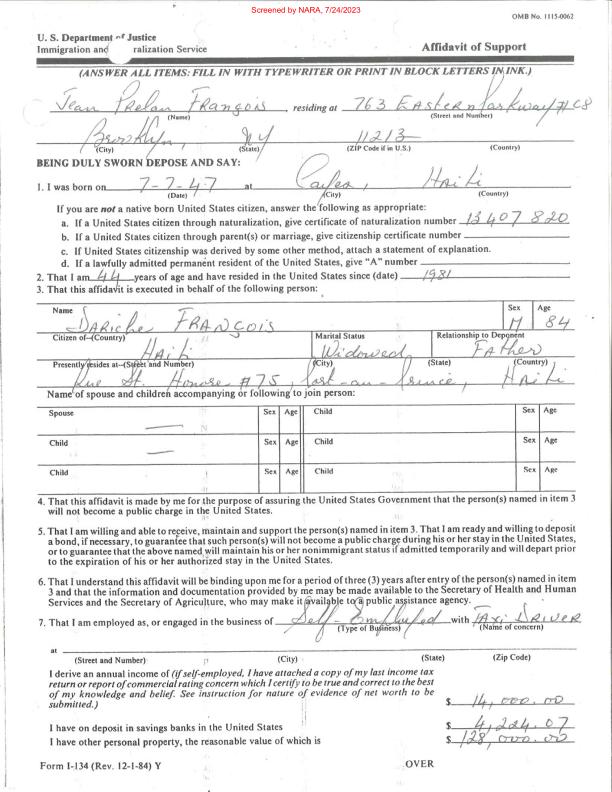 Screened by NARA, 7/24/2023
OMB No. 1115-0062
U. S. Department of Justice
Immigration and ralization Service
Affidavit of Support
(ANSWER ALL ITEMS: FILL IN WITH TYPEWRITER OR PRINT IN BLOCK LETTERS IN INK.)
Jean Prelan François , residing at 763 Eastern Parkway # C8
(Name) (Street and Number)
Brooklyn, NY 11213
(City) (State) (ZIP Code if in U.S.) (Country)
BEING DULY SWORN DEPOSE AND SAY:
1. I was born on 7-7-47 at Cayes, Haiti
(Date) (City) (Country)
If you are not a native born United States citizen, answer the following as appropriate:
a. If a United States citizen through naturalization, give certificate of naturalization number 13407820
b. If a United States citizen through parent(s) or marriage, give citizenship certificate number
c. If United States citizenship was derived by some other method, attach a statement of explanation.
d. If a lawfully admitted permanent resident of the United States, give "A" number
2. That I am 44 years of age and have resided in the United States since (date) 1981
3. That this affidavit is executed in behalf of the following person:
Name Sex Age
Dariche François M 84
Citizen of–(Country) Marital Status Relationship to Deponent
Haiti Widowed Father
Presently resides at–(Street and Number) (City) (State) (Country)
Rue St. Honore # 75, Port-au-Prince, Haiti
Name of spouse and children accompanying or following to join person:
Spouse Sex Age Child Sex Age
Child Sex Age Child Sex Age
Child Sex Age Child Sex Age
4. That this affidavit is made by me for the purpose of assuring the United States Government that the person(s) named in item 3
will not become a public charge in the United States.
5. That I am willing and able to receive, maintain and support the person(s) named in item 3. That I am ready and willing to deposit
a bond, if necessary, to guarantee that such person(s) will not become a public charge during his or her stay in the United States,
or to guarantee that the above named will maintain his or her nonimmigrant status if admitted temporarily and will depart prior
to the expiration of his or her authorized stay in the United States.
6. That I understand this affidavit will be binding upon me for a period of three (3) years after entry of the person(s) named in item
3 and that the information and documentation provided by me may be made available to the Secretary of Health and Human
Services and the Secretary of Agriculture, who may make it available to a public assistance agency.
7. That I am employed as, or engaged in the business of Self-Employed with Taxi Driver
(Type of Business) (Name of concern)
at
(Street and Number) (City) (State) (Zip Code)
I derive an annual income of (if self-employed, I have attached a copy of my last income tax
return or report of commercial rating concern which I certify to be true and correct to the best
of my knowledge and belief. See instruction for nature of evidence of net worth to be
submitted.) $ 14,000.00
I have on deposit in savings banks in the United States $ 4,224.07
I have other personal property, the reasonable value of which is $ 128,000.00
Form I-134 (Rev. 12-1-84) Y OVER